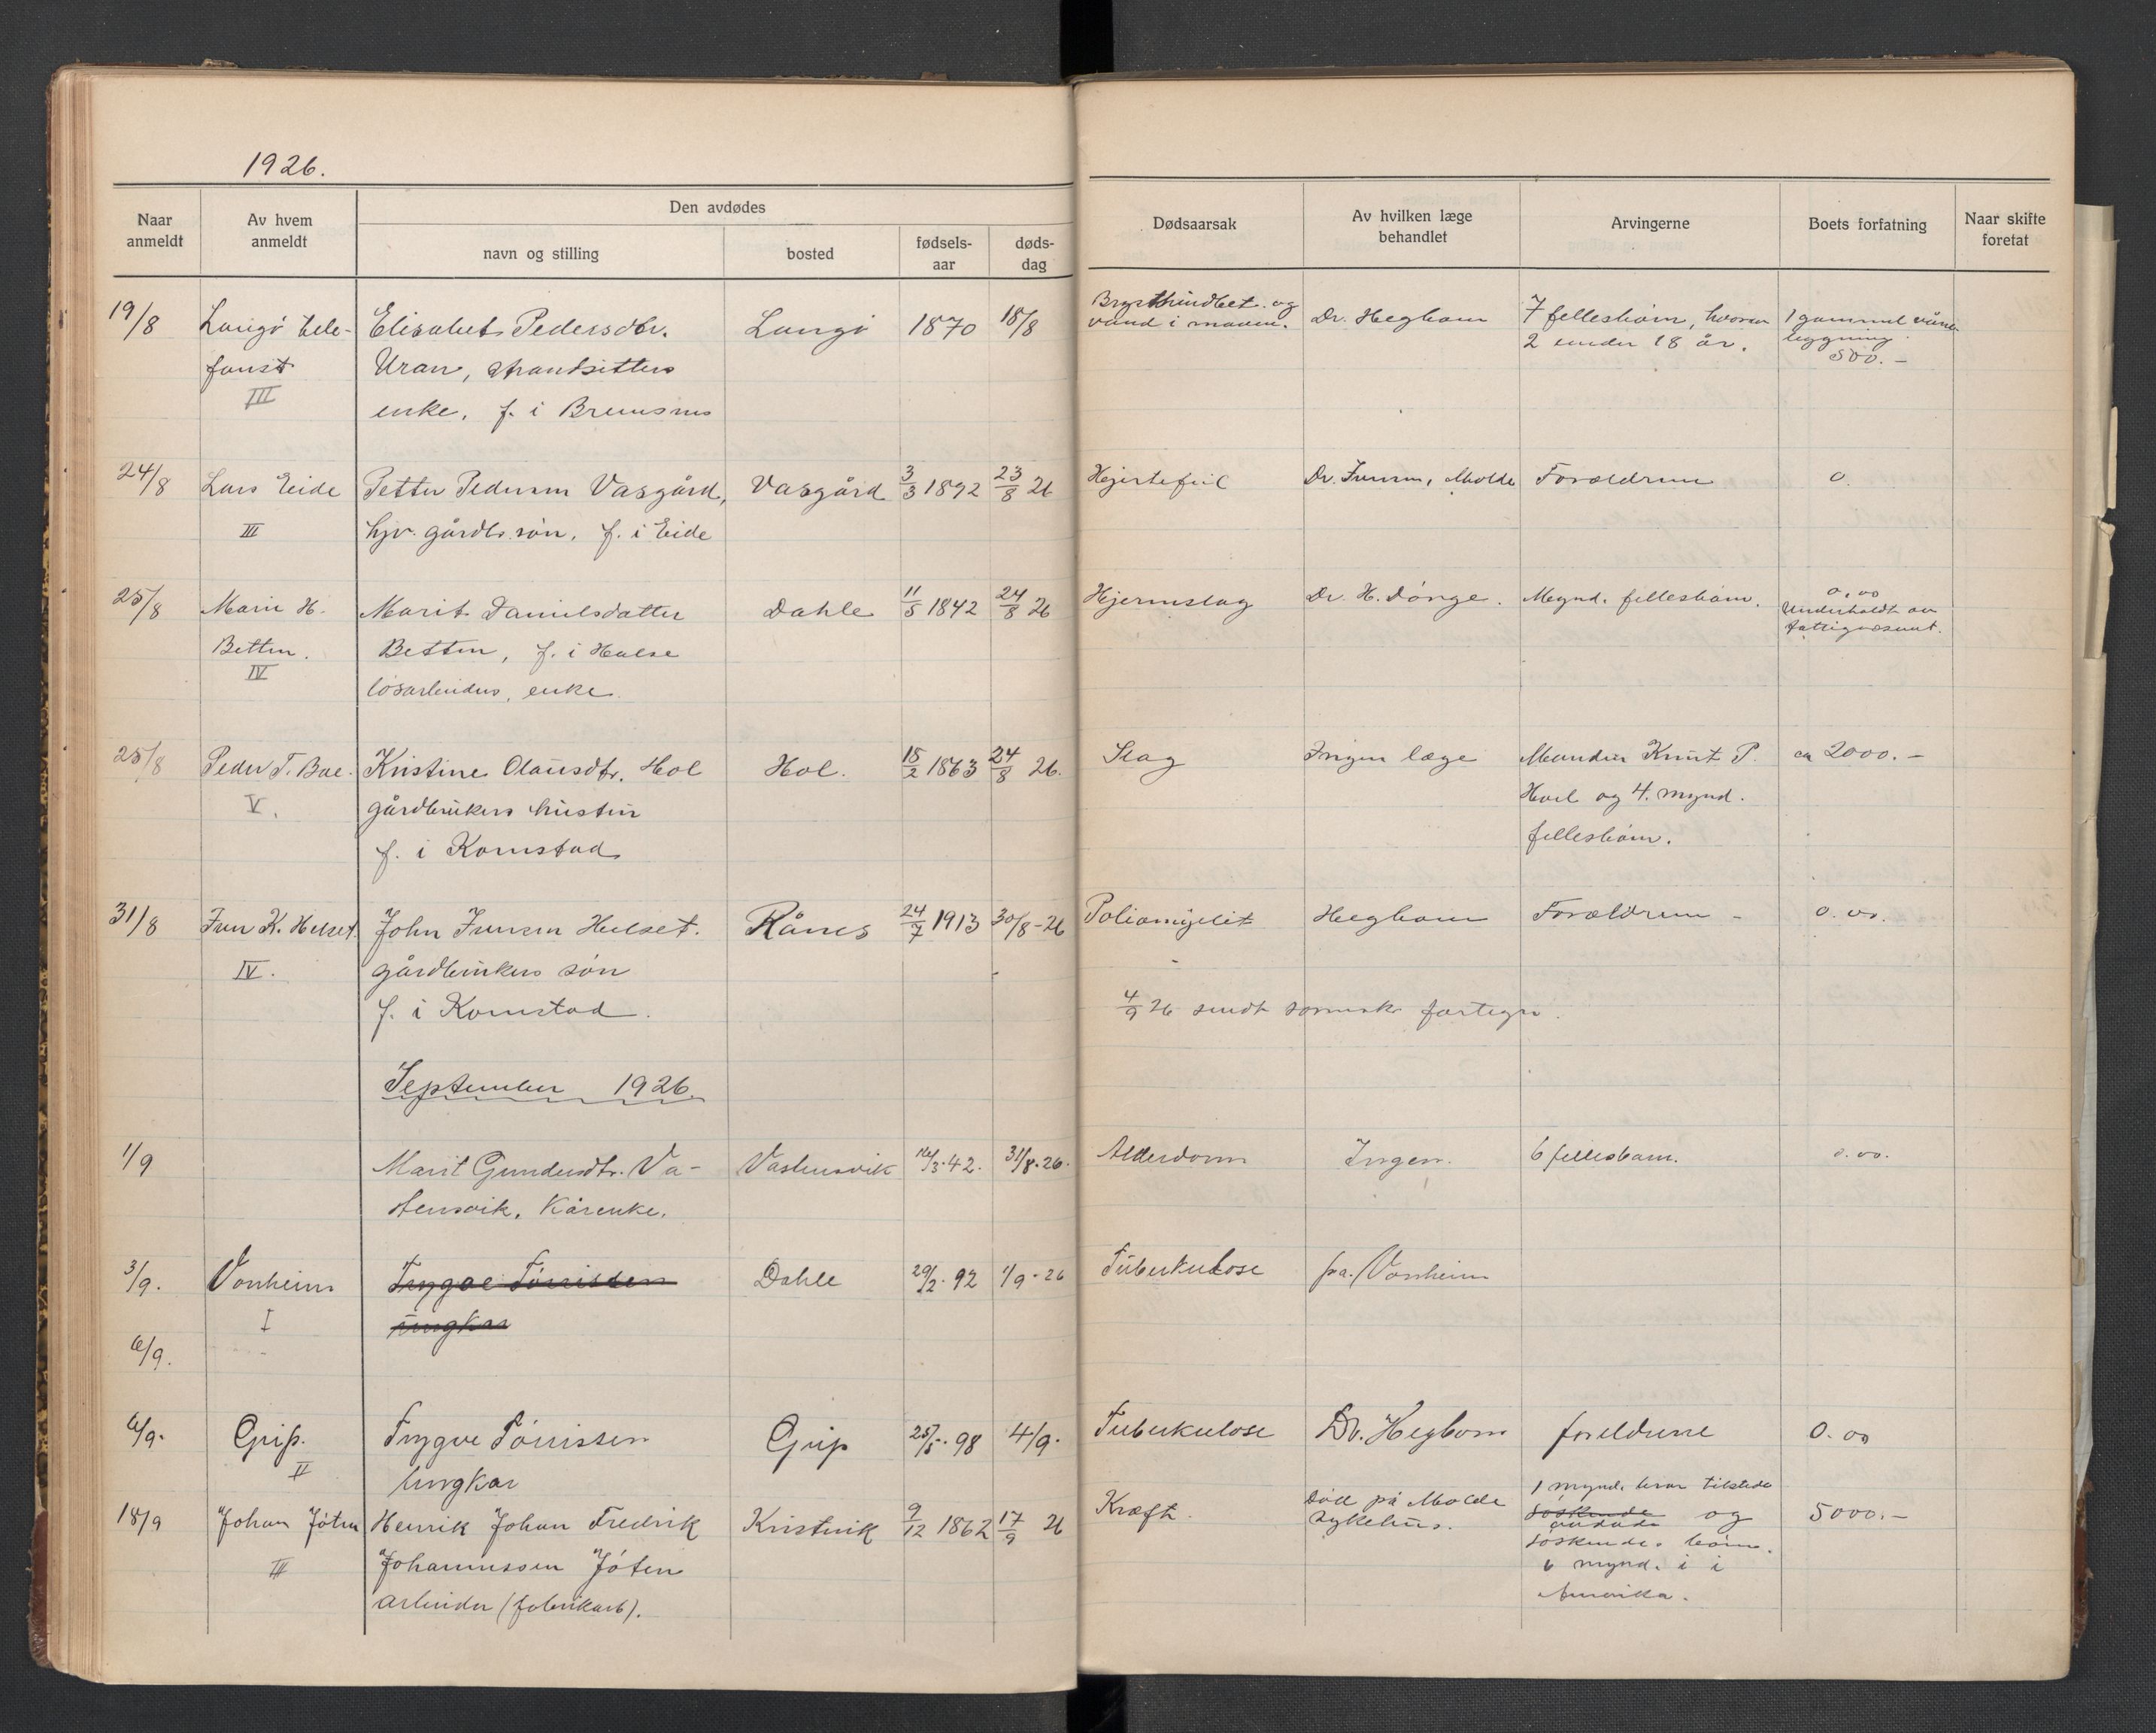 1926.
Naar anmeldt
Av hvem anmeldt
Den avdødes
navn og stilling
bosted
fødsels-aar
døds-dag
Dødsaarsak
Av hvilken læge behandlet
Arvingerne
Boets forfatning
Naar skifte foretat
19/8 Langø tele- Elisabet Pedersdtr. Langø 1870 18/8 Brysthindbet. og 7 fellesbörn, hvorav 1 gammel
fonst Uran, strandsitters vand i maven. Dr. Hegbom 2 under 18 år. 500.-
III enke, f. i Bremsnes
24/8 Lars Eide Petter Pedersen Vasgård, Vasgård 3/3 1892 23/8 26 Hjertefeil Dr. Jensen, Molde Forældrene 0.
III hjv. gårdbr. søn, f. i Eide
25/8 Marie H. Marit Danielsdatter Dahle 11/5 1842 24/8 26 Hjerneslag Dr. H. Dönge. Mynd. fellesbörn. 0,00
Betten. Betten, f. i Halse Underholdt av
IV løsarbeiders enke fattigvæsenet.
25/8 Peder T. Boe. Kristine Olausdtr. Hol Hol. 15/2 1863 24/8 26. Slag Ingen læge Manden Knut P. ca 2000.-
V. gårdbrukers hustru Hoel og 4 mynd.
f. i Kornstad fellesbörn.
31/8 Jens K. Helset. John Jensen Helset. Rånes 24/7 1913 30/8-26 Poliomyelit Hegbom Forældrene - 0.00.
IV. gårdbrukers søn
f. i Kornstad. 4/9 26 sendt fortegn.
September 1926.
1/9 Marit Gundersdtr. Va- Vastensvik 16/3.42. 31/8.26. Alderdom Ingen. 6 fellesbarn. 0.00.
stensvik. Kårenke.
3/9. Vonheim Trygve Tönissen Dahle 29/2.92 1/9-26 Tuberkulose pa. Vonheim
I ungkar
6/9.
6/9. Grip. Trygve Tönissen Grip 25/5.98 4/9. Tuberkulose Dr. Hegbom foreldrene 0.00
II Ungkar
18/9 Johan Jöten Henrik Johan Fredrik Kristvik 9/12 1862 17/9 26 Kræft. Död på Molde 1 mynd. bror tilstede 5000.-
III Johannessen Jöten sykehus. söskende og
arbeider (fabrikarb). avdöde
söskendes börn.
6 mynd. i i
Amerika.